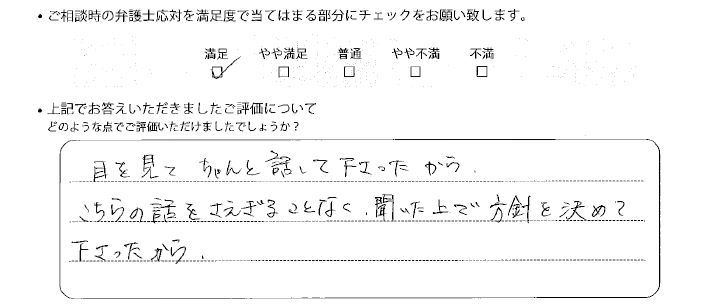 ・ご相談時の弁護士応対を満足度で当てはまる部分にチェックをお願い致します。
満足 やや満足 普通 やや不満 不満
☑ □ □ □ □
・上記でお答えいただきましたご評価について
どのような点でご評価いただけましたでしょうか？
目を見て ちゃんと話して下さったから.
こちらの話をさえぎることなく、聞いた上で方針を決めて
下さったから.